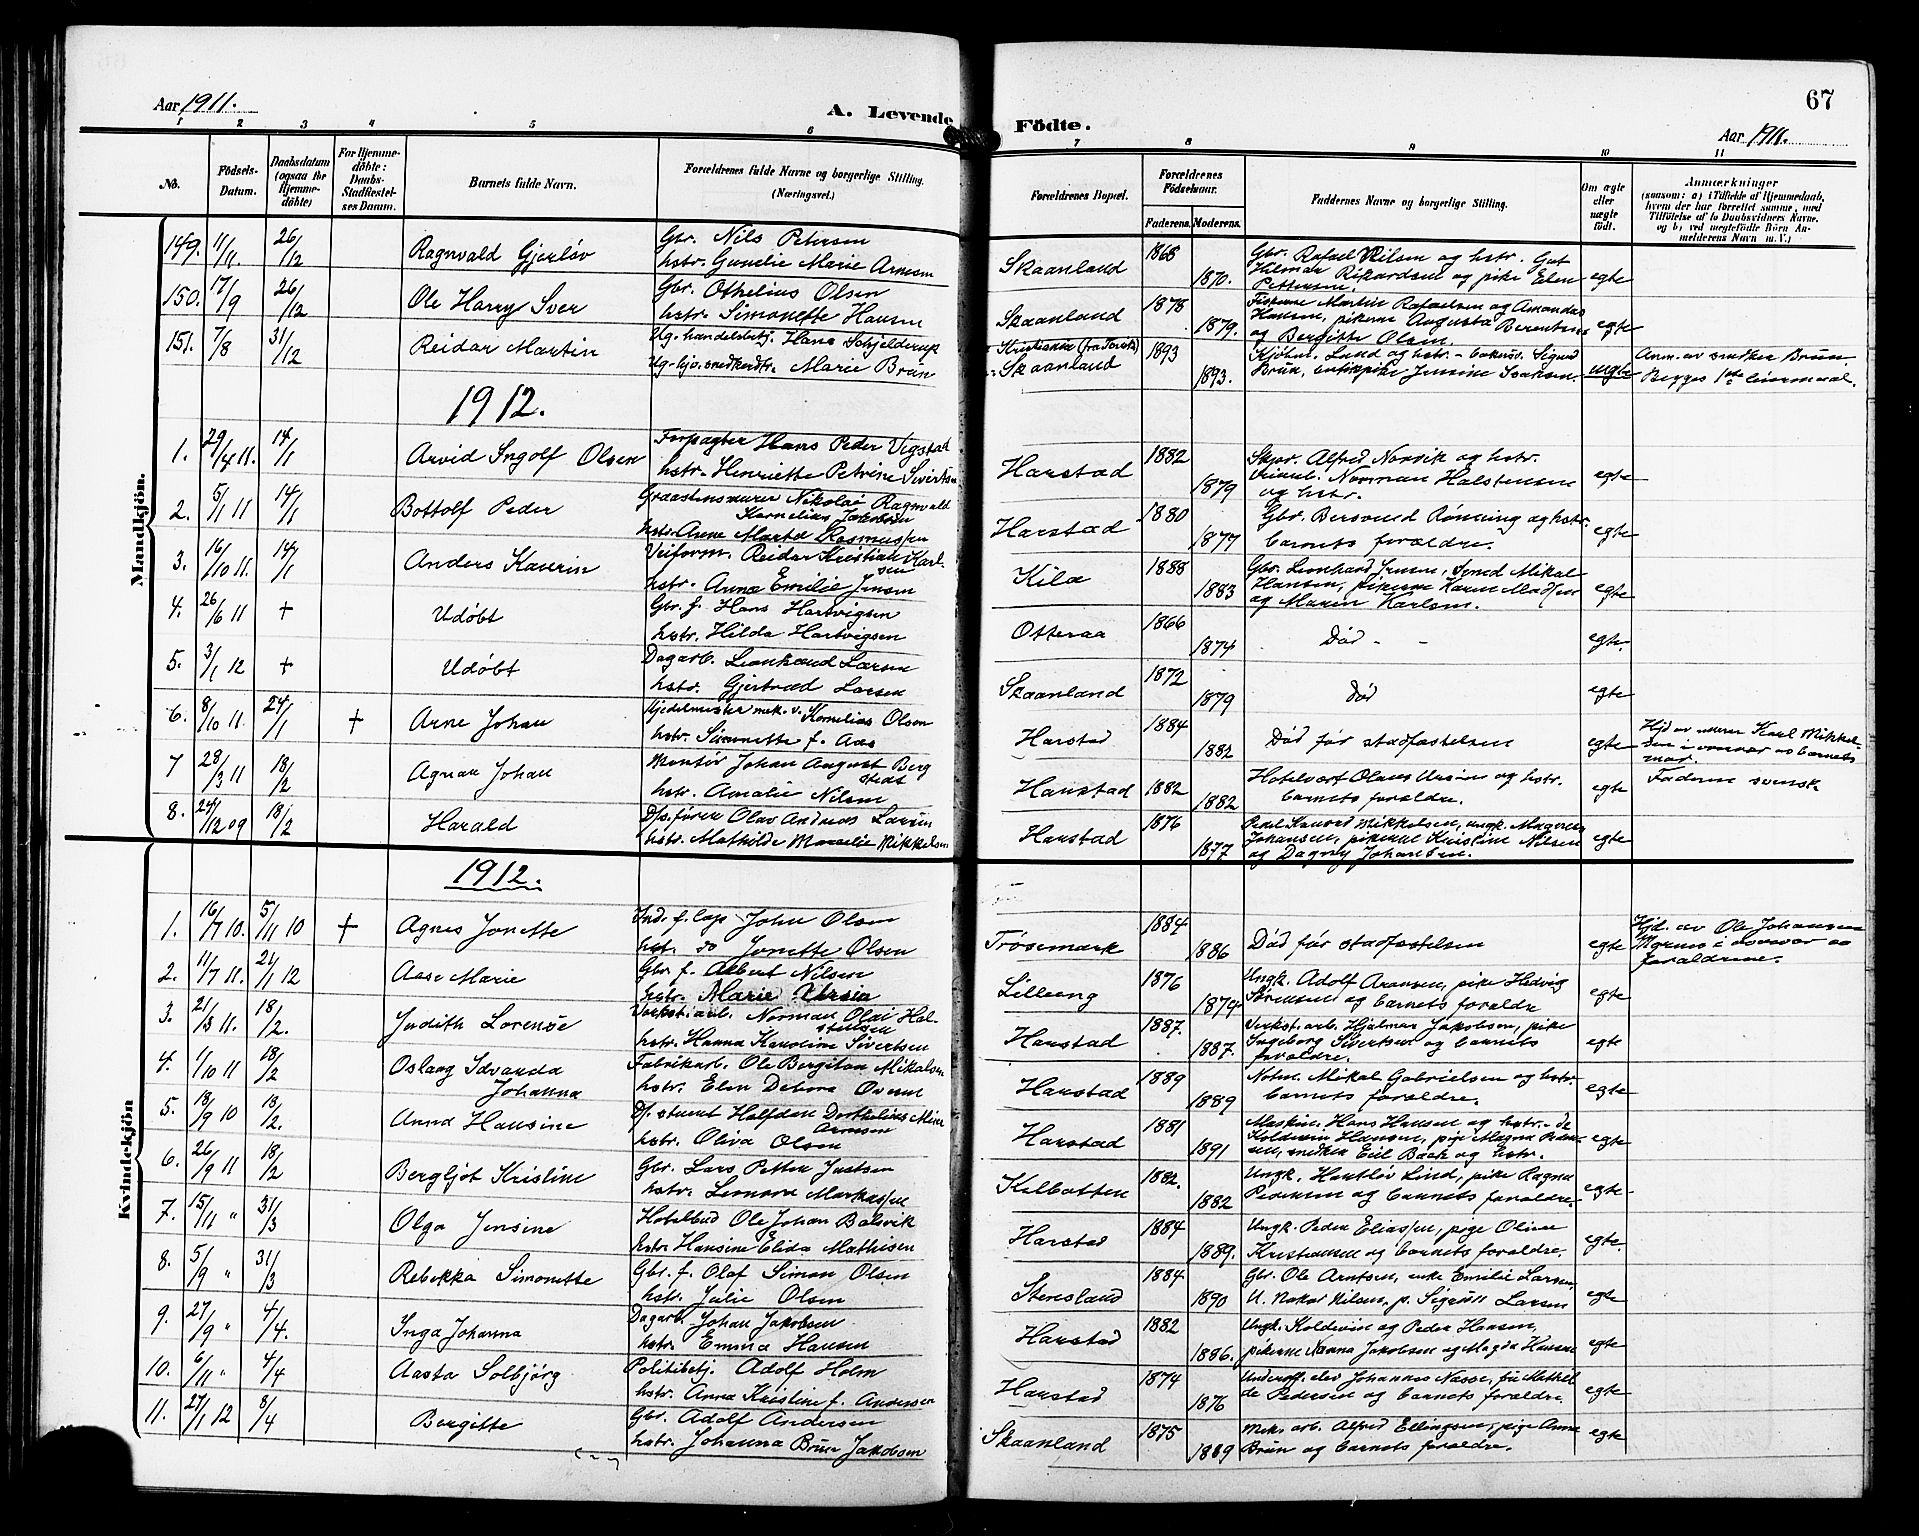 Aar 1911.
A. Levende
Födte.
67
Aar 1911.
1 2 3 4 5 6 7 8 9 10 11
No.
Födsels-
Datum.
Daabsdatum
(ogsaa for
Hjemme-
döbte)
For Hjemme-
döbte:
Daabs-
Stadfæstel-
ses Datum.
Barnets fulde Navn.
Forældrenes fulde Navne og borgerlige Stilling.
(Næringsvei.)
Forældrenes Bopæl.
Forældrenes
Födselsaar.
Faderens. Moderens.
Faddernes Navne og borgerlige Stilling.
Om ægte
eller
uægte
födt.
Anmærkninger
(saasom: a) i Tilfælde af Hjemmedaab,
hvem der har forrettet samme, med
Tilföielse af to Daabsvidners Navne.
og b) ved uegtefödte Börn An-
melderens Navn m. V.)
Mandkjön.
149. 11/11. 26/12 Ragnvald Gjerløv Gbr. Nils Petersen
hstr. Gunelie Marie Arnesen
Skaanland 1868 1870. Gbr. Rafael Nilsen og hstr. Gut
Hilmar Rikardsen og pike Elen
Pettersen. egte
150. 17/9 26/12 Ole Harry Sver Gbr. Othelius Olsen
hstr. Simonette Hansen
Skaanland 1878 1879. Fiskerne Martin Rafaelsen og Amandas
Hansen, pikerne Augusta Berentsen
og Bergitte Olsen. egte
151. 7/8 31/12 Reidar Martin Ug. handelsbetj. Hans Schjelderup
Ug. hjv. snedkerdtr. Marie Brun
Skaanland 1893 1893. Lund og hstr. - bakersv. Sigurd
Brun, butikpike Jensine Isaksen. uegte Anm. av snedker Brun.
Begges 1ste leiermaal.
1912.
1. 29/4 11. 14/1 Arvid Ingolf Olsen Forpagter Hans Peder Vigstad
hstr. Henriette Petrine Sivertsen
Harstad 1882 1879 Skpr. Alfred Norvik og hstr.
Norman Halstensen
og hstr. egte
2. 5/1 11 14/1 Bottolf Peder Graastensmurer Nikolai Ragnvald
Kornelius Jakobsen
hstr. Anne Marta Rasmussen
Harstad 1880 1877 Gbr. Bersvend Rønning og hstr.
barnets forældre. egte
3. 16/10 11. 14/1 Anders Kaverin Veiform. Reidar Kristian Karl-
sen
hstr. Anna Emilie Jensen
Kila 1888 1883 Gbr. Leonhard Jensen, Mikal
Hansen, pikerne Karen Madsen
og Maren Karlsen. egte
4. 26/6 11 + Udøbt Gbr. f. Hans Hartvigsen
hstr. Hilda Hartvigsen
Otteraa 1866 1874 Død - - egte.
5. 3/1 12 + Udøbt Dagarb. Leonhard Larsen
hstr. Gjertrud Larsen
Skaanland 1872 1879 Død egte
6. 8/10 11. 24/1 + Arne Johan Kjedelmester mek. v. Kornelius Olsen
hstr. Simonette f. Aas
Harstad 1884 1882 Død før stadfæstelsen egte Hjd av murer Karl Mikkel-
sen i nærvær av barnets
mor.
7 28/3 11 18/2 Agnar Johan Montør Johan August Berg
stedt
hstr. Amalie Nilsen
Harstad 1882 1882 Hotelvært Olaus Ursin og hstr.
barnets forældre. egte Faderen svensk.
8. 24/12 09 18/2 Harald Ds. fører Olav Andreas Larsen
hstr. Mathilde Marelie Mikkelsen
Harstad 1876 1877 Mikkelsen, ungk. Magnus
Johansen, pikerne Kristine Nilsen
og Dagny Johansen. egte
Kvindekjön
1912.
1. 16/7 10. 5/11 10 + Agnes Jonette Ind. f. Lap John Olsen
hst. do Jonette Olsen
Trøsemark 1884 1886 Død før stadfæstelsen egte Hjd. av Ole Johansen
Mörnes i nærvær av
forældrene.
2. 11/7 11. 21/1 12 Aase Marie Gbr. f. Albert Nilsen
hstr. Marie Ursin
Lilleeng 1876 1874 Ungk. Adolf Aronsen, pike Hedvig
Sörensen og barnets forældre egte
3. 21/3 11. 18/2. Judith Lorense Verkst. arb. Norman Olai Hal-
stensen
hstr. Hanna Karoline Sivertsen
Harstad 1887. 1887. Verkst. arb. Hjalmar Jakobsen, pike
Ingeborg Sivertsen og barnets
forældre. egte
4. 1/10 11 18/2 Oslaug Edvarda
Johanna Fabrikarb. Ole Bergiton Mikalsen
hstr. Elen Debora
Harstad 1889 1889 Mikal Gabrielsen og hstr.
barnets forældre. egte
5. 18/9 10 18/2. Anna Hansine Ds. stuert Halfdan Dorthelius Meier
Arnesen
hstr. Oliva Olsen
Harstad 1881 1891 Maskin. Hans Hansen og hstr. - de
Koldevin Hansen, pige Magna Peder-
sen, snedker Eil Baak og hstr. egte
6. 26/9 11 18/2 Bergljot Kristine Gbr. Lars Petter Justsen
hstr. Leonora Markussen
Kilbotten 1882. 1882 Ungk. Hartløv Lind, pike Ragna
Pedersen og barnets forældre. egte
7. 15/11 " 31/3 Olga Jensine Hotelbud Ole Johan Balsvik
hstr. Hansine Elida Mathisen
Harstad 1884 1889. Ungk. Peder Eliassen, pige Oline
Kristiansen og barnets forældre. egte.
8. 5/9 " 31/3 Rebekka Simonette Gbr. f. Olaf Simon Olsen
hstr. Julie Olsen
1884 1890 Gbr. Ole Arntsen, enke Emilie Larsen,
U. Nakor Nilsen, p. Sigrun Larsen egte
9. 27/9 " 4/4. Inga Johanna Dagarb. Johan Jakobsen
hstr. Emma Hansen
Harstad 1882 1886. Ungk. Koldevin og Peder Hansen,
pikerne Nanna Jakobsen og Magda Hansen egte
10. 6/11 " 4/4 Aasta Solbjörg Politibetj. Adolf Holm
hstr. Anna Kristine f. Andersen
Harstad 1874 1876 Underoff. elev Johannes Næsse, fru Mathil
de Pedersen og barnets forældre. egte
11. 27/1 12 8/4 Bergitte Gbr. Adolf Andersen
hstr. Johanna Brun Jakobsen
Skaanland 1875 1889 Mek. arb. Alfred Ellingsen, pige Anna
Brun og barnets forældre. egte